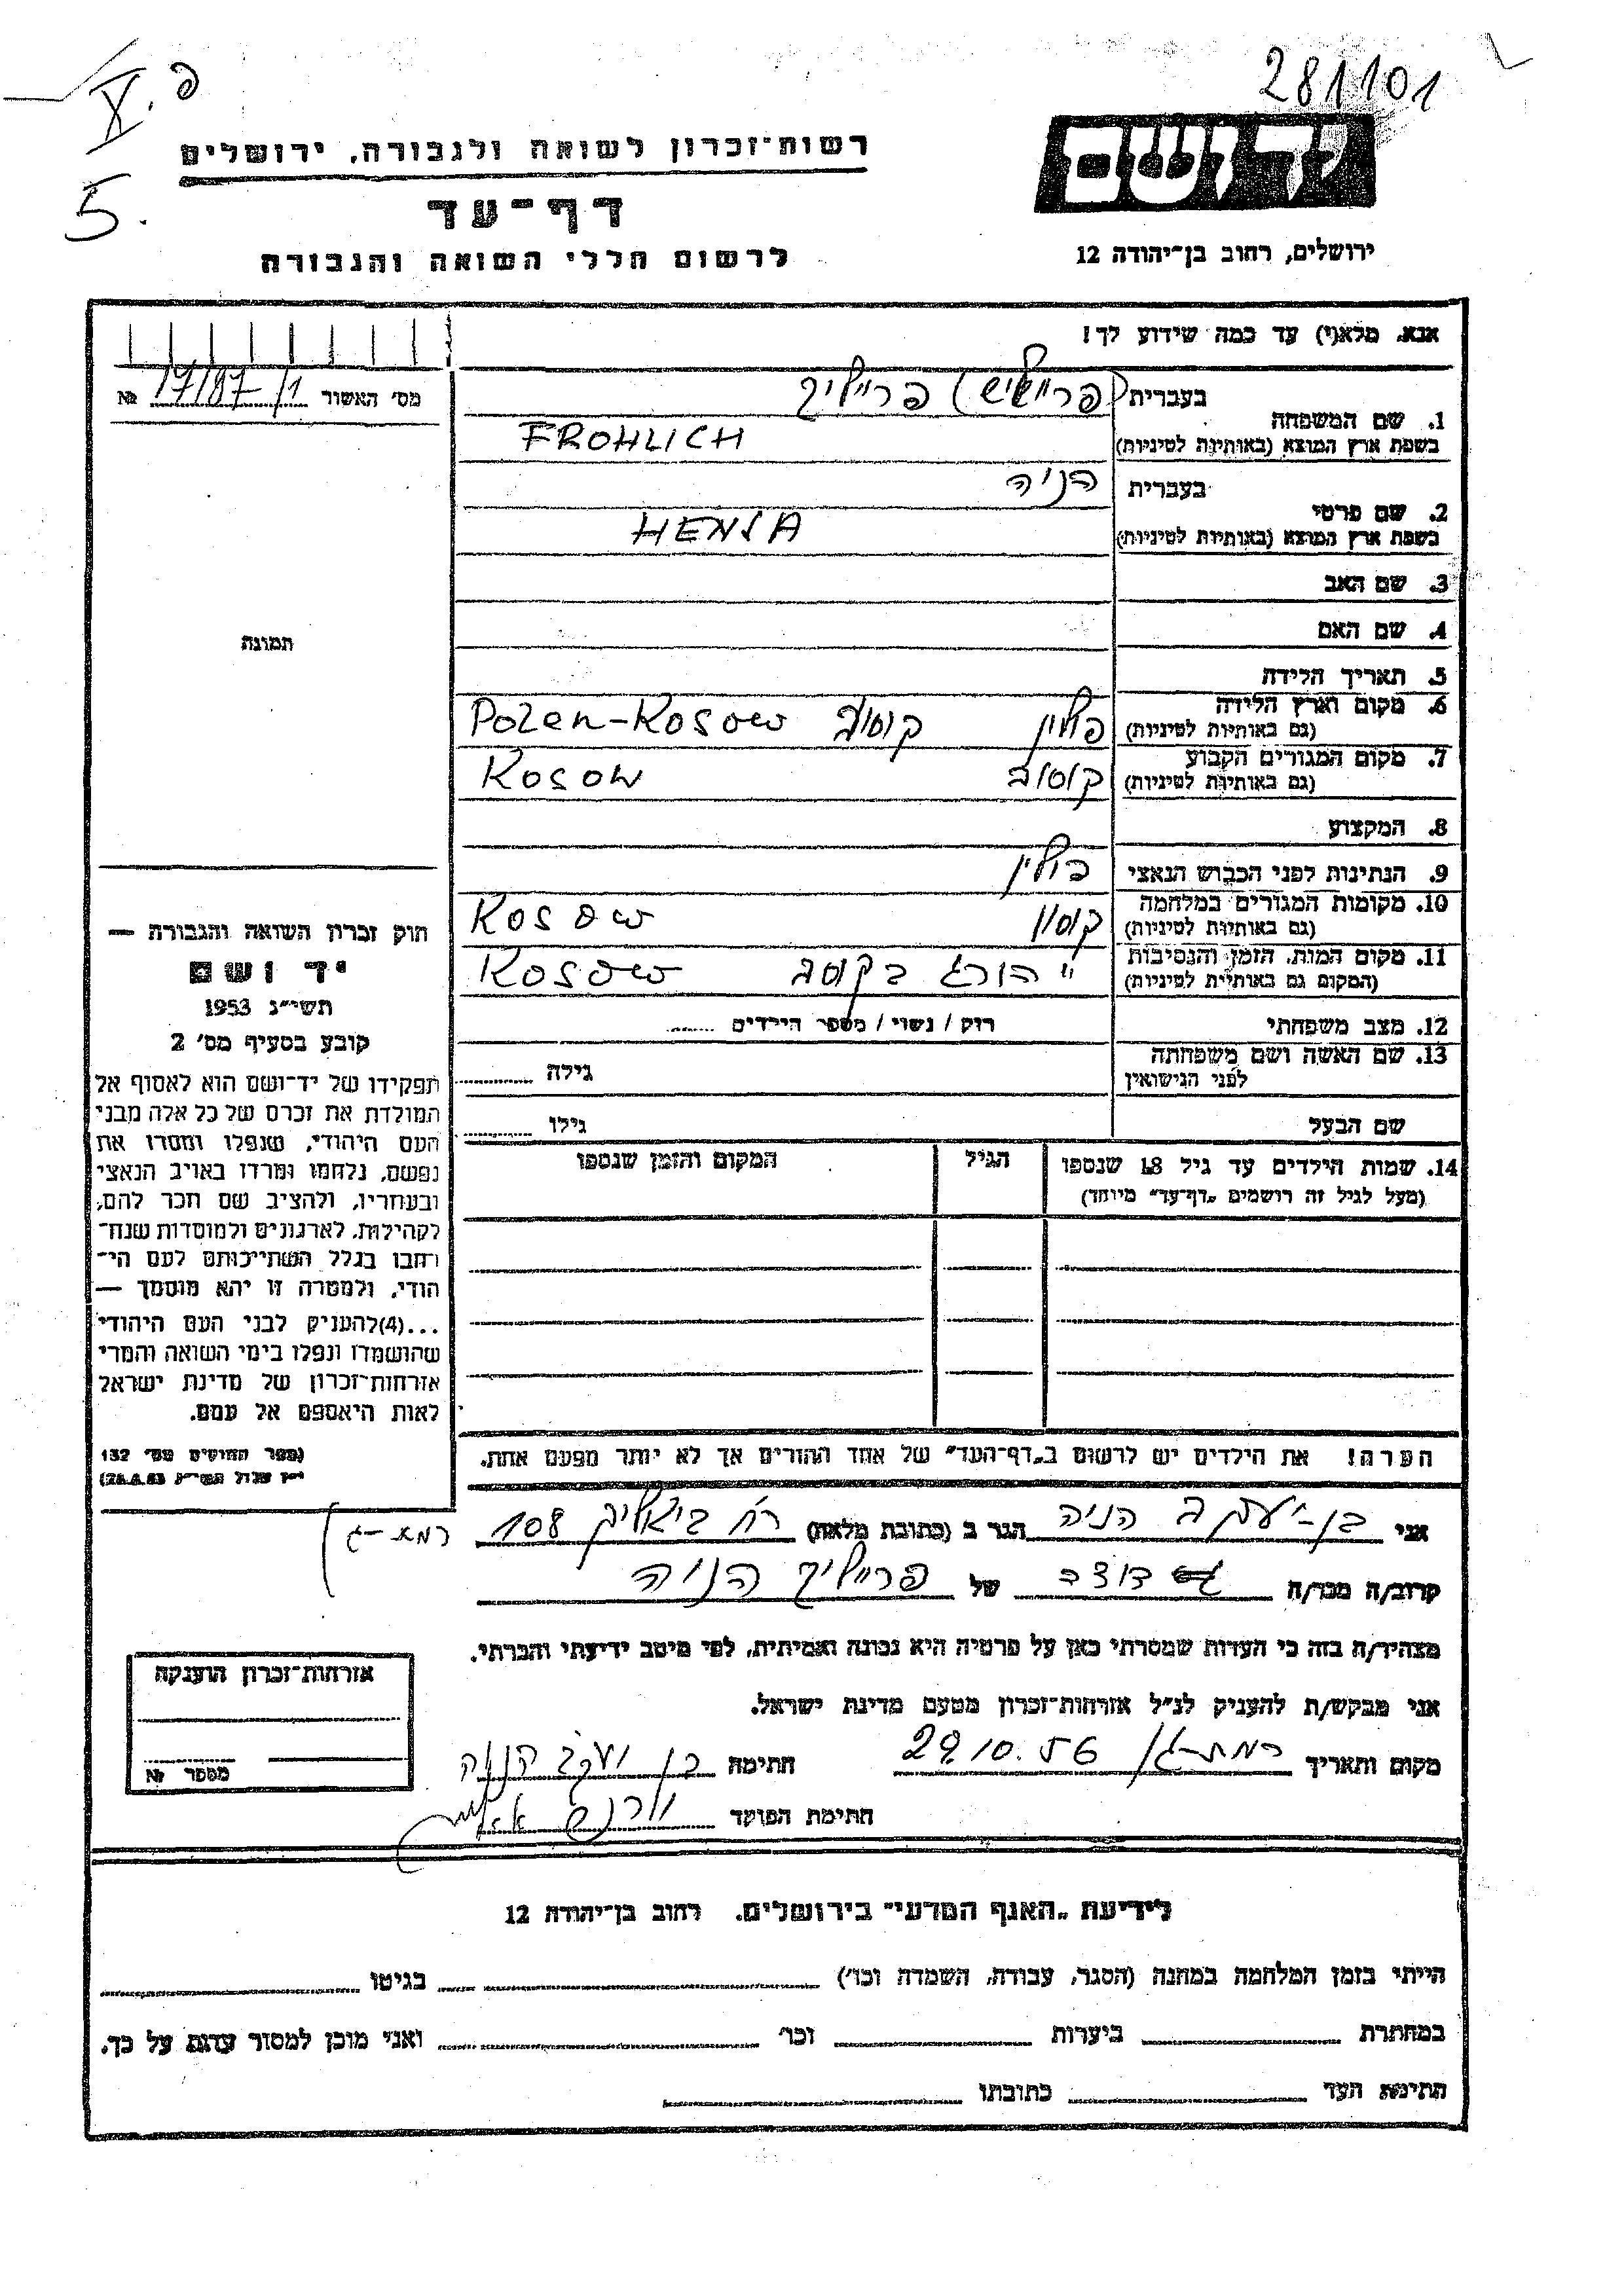 281101
פ. X
5.
יד ושם
ירושלים, רחוב בן־יהודה 12
רשות־זכרון לשואה ולגבורה, ירושלים
דף־עד
לרשום חללי השואה והגבורה
אנא, מלא(י) עד כמה שידוע לך!
בעברית (פריליש) פרייליך
1. שם המשפחה
בשפת ארץ המוצא (באותיות לטיניות) FROHLICH
בעברית הניה
2. שם פרטי
בשפת ארץ המוצא (באותיות לטיניות) HENIA
3. שם האב
4. שם האם
5. תאריך הלידה
6. מקום וארץ הלידה פולין קוסוב Polen-Kosow
(גם באותיות לטיניות)
7. מקום המגורים הקבוע קוסוב Kosow
(גם באותיות לטיניות)
8. המקצוע
9. הנתינות לפני הכבוש הנאצי פולין
10. מקומות המגורים במלחמה Kosow
(גם באותיות לטיניות)
11. מקום המות, הזמן והנסיבות הורג בקוסב Kosow
(המקום גם באותיות לטיניות)
12. מצב משפחתי רווק / נשוי / מספר הילדים
13. שם האשה ושם משפחתה גילה
לפני הנישואין
שם הבעל גילו
14. שמות הילדים עד גיל 18 שנספו הגיל המקום והזמן שנספו
(מעל לגיל זה רושמים „דף־עד" מיוחד)
הערה! את הילדים יש לרשום ב„דף־העד" של אחד ההורים אך לא יותר מפעם אחת.
מס' האשור 17/87/1 №
תמונה
חוק זכרון השואה והגבורה —
יד ושם
תשי"ג 1953
קובע בסעיף מס' 2
תפקידו של יד־ושם הוא לאסוף אל
המולדת את זכרם של כל אלה מבני
העם היהודי, שנפלו ומסרו את
נפשם, נלחמו ומרדו באויב הנאצי
ובעוזריו, ולהציב שם וזכר להם,
לקהילות, לארגונים ולמוסדות שנח־
רבו בגלל השתייכותם לעם הי־
הודי, ולמטרה זו יהא מוסמך —
...(4)להעניק לבני העם היהודי
שהושמדו ונפלו בימי השואה והמרי
אזרחות־זכרון של מדינת ישראל
לאות היאספם אל עמם.
(ספר החוקים מס' 132
י"ז אלול תשי"ג 28.8.53)
אני בן-יעקב הניה הגר ב (כתובת מלאה) רח ביאליק 108 רמת-ג
קרוב/ה מכר/ה של פרייליך הניה
מצהיר/ה בזה כי העדות שמסרתי כאן על פרטיה היא נכונה ואמיתית, לפי מיטב ידיעתי והכרתי.
אני מבקש/ת להעניק לנ"ל אזרחות־זכרון מטעם מדינת ישראל.
מקום ותאריך רמת-גן 29.10.56 חתימה בן יעקב הניה
חתימת הפוקד
אזרחות־זכרון הוענקה
מספר №
לידיעת „האגף המדעי" בירושלים, רחוב בן־יהודה 12
הייתי בזמן המלחמה במחנה (הסגר, עבודה, השמדה וכו') בגיטו
במחתרת ביערות וכו' ואני מוכן למסור עדות על כך.
חתימת העד כתובתו